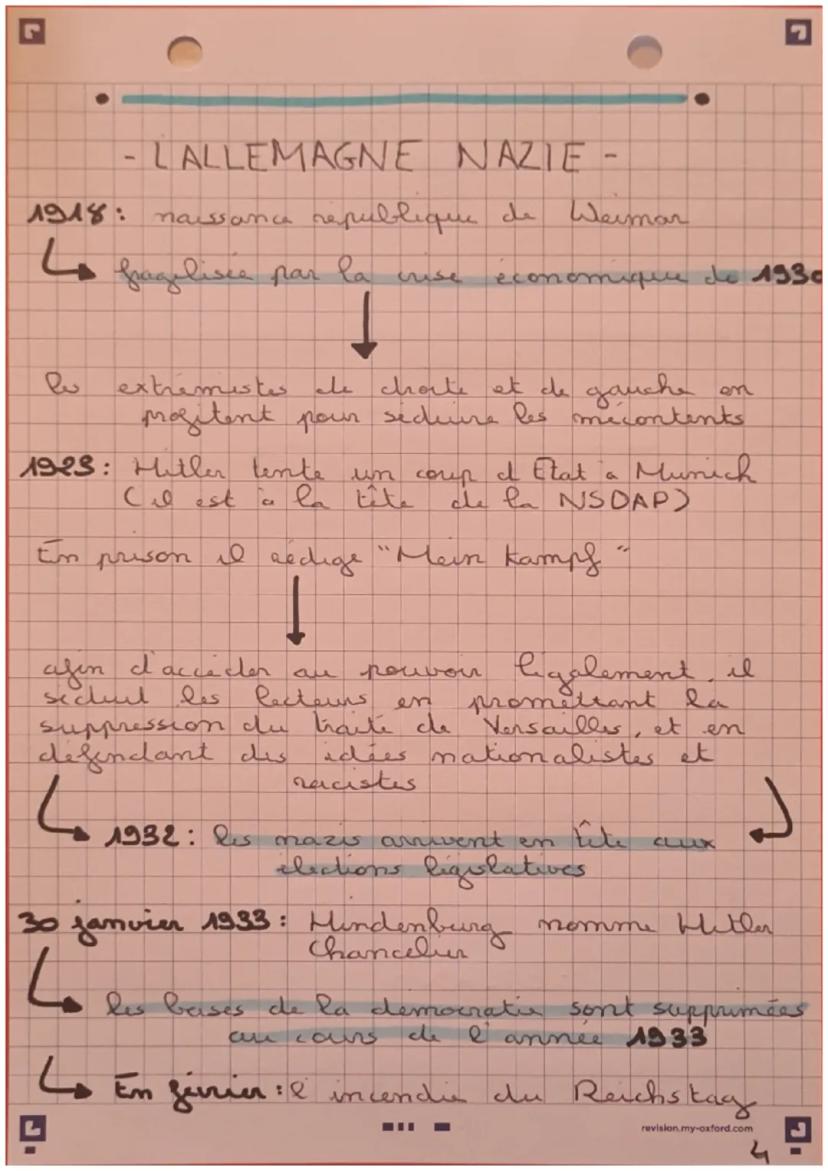 - L'ALLEMAGNE NAZIE -
1918: naissance république de Weimar
fragilisée par la crise économique de 1930
les extrémistes de droite et de gauche en
profitent pour séduire les mécontents
1923: Hitler tente un coup d'Etat à Munich
(il est à la tête de la NSDAP)
En prison il rédige "Mein Kampf"
afin d'accéder au pouvoir légalement, il
séduit les lecteurs en promettant la
suppression du traité de Versailles, et en
défendant des idées nationalistes et
racistes
1932: les nazis arrivent en tête aux
élections législatives
30 janvier 1933: Hindenburg nomme Hitler
Chancelier
les bases de la démocratie sont supprimées
au cours de l'année 1933
En février: l'incendie du Reichstag
revision.my-oxford.com
4